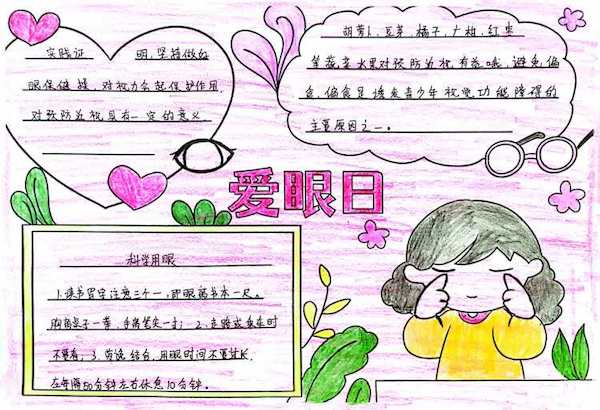 实践证明,坚持做好
眼保健操,对视力会起保护作用,
对预防近视具有一定的意义
胡萝卜、豆芽、橘子、广柑、红枣
等蔬菜水果对预防近视有益哦,避免偏
食,偏食是诱发青少年视觉功能障碍的
主要原因之一。
爱眼日
科学用眼
1.读书写字注意三个一,即眼离书本一尺。
胸离桌子一拳,手离笔尖一寸;2、走路或乘车时
不要看;3、劳逸结合,用眼时间不要过长,
在每隔50分钟左右休息10分钟。